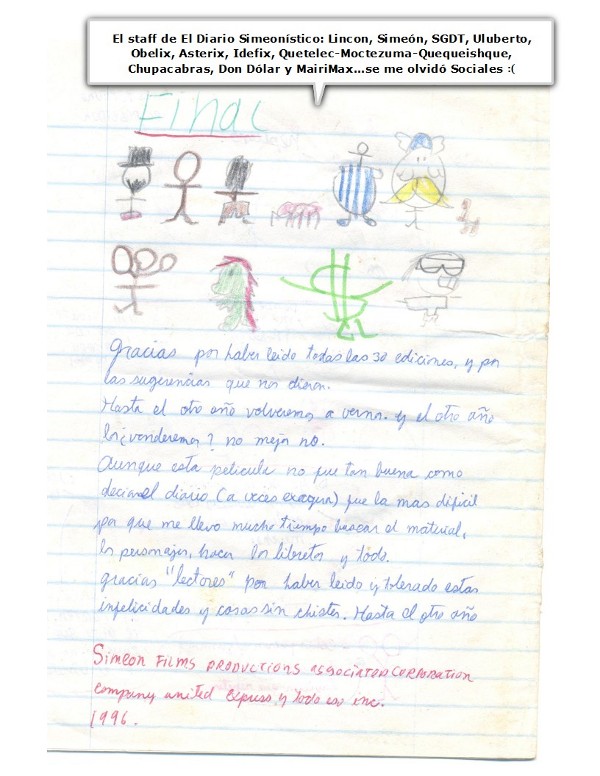 El staff de El Diario Simeonístico: Lincon, Simeón, SGDT, Uluberto,
Obelix, Asterix, Idefix, Quetelec-Moctezuma-Quequeishque,
Chupacabras, Don Dólar y MairiMax...se me olvidó Sociales :(
Final
Gracias por haber leido todas las 30 ediciones, y por
las sugerencias que nos dieron.
Hasta el otro año volveremos a vernos. y el otro año
los ¿venderemos? no mejor no.
Aunque esta pelicula no fue tan buena como
decia el diario (a veces exagera) fue la mas dificil
ya que me llevo mucho tiempo buscar el material,
los personajes, hacer los libretos y todo.
gracias "lectores" por haber leido y tolerado estas
infelicidades y cosas sin chiste. Hasta el otro año
Simeon FILMS PRODUCTIONS ASSOCIATED CORPORATION
company united express y todo eso inc.
1996.